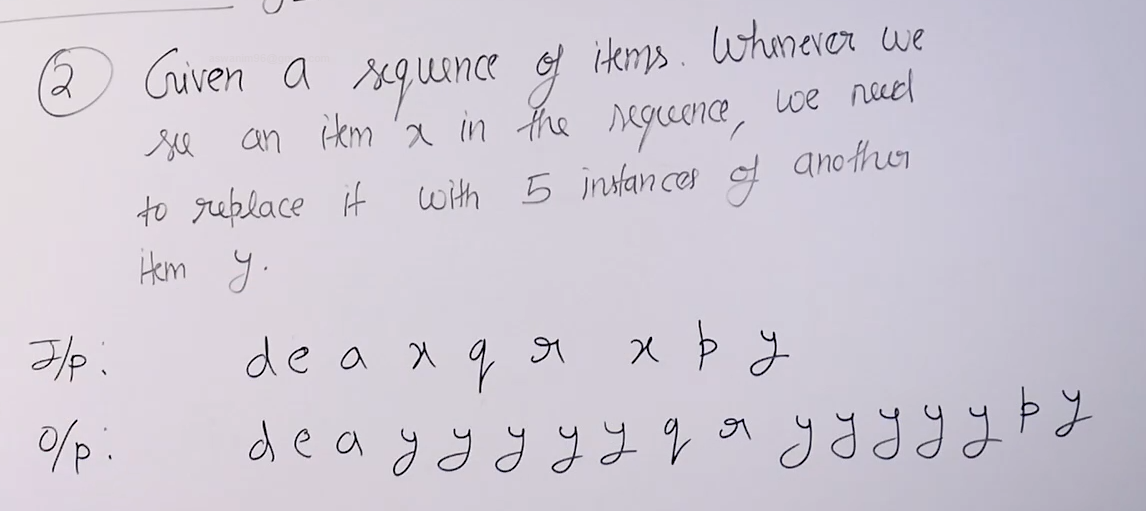 ② Given a sequence of items. Whenever we
see an item x in the sequence, we need
to replace it with 5 instances of another
item y.
I/p: d e a x q r x p y
O/p: d e a y y y y y q r y y y y y p y